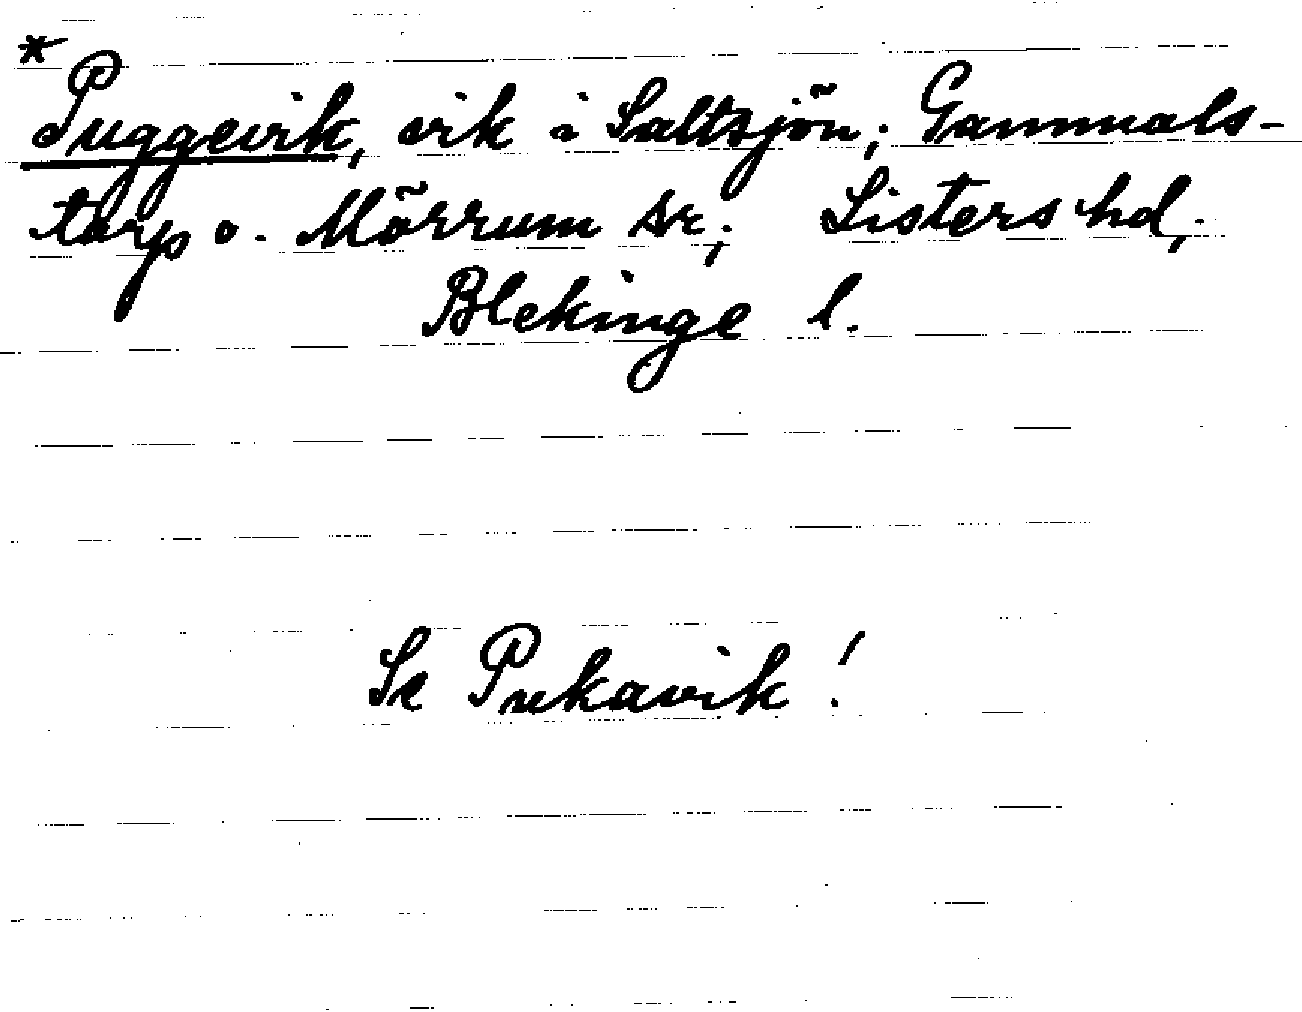 *
Puggevik, vik i Saltsjön; Gammals-
torp o. Mörrum sr; Listers hd,
Blekinge l.
Se Pukavik!